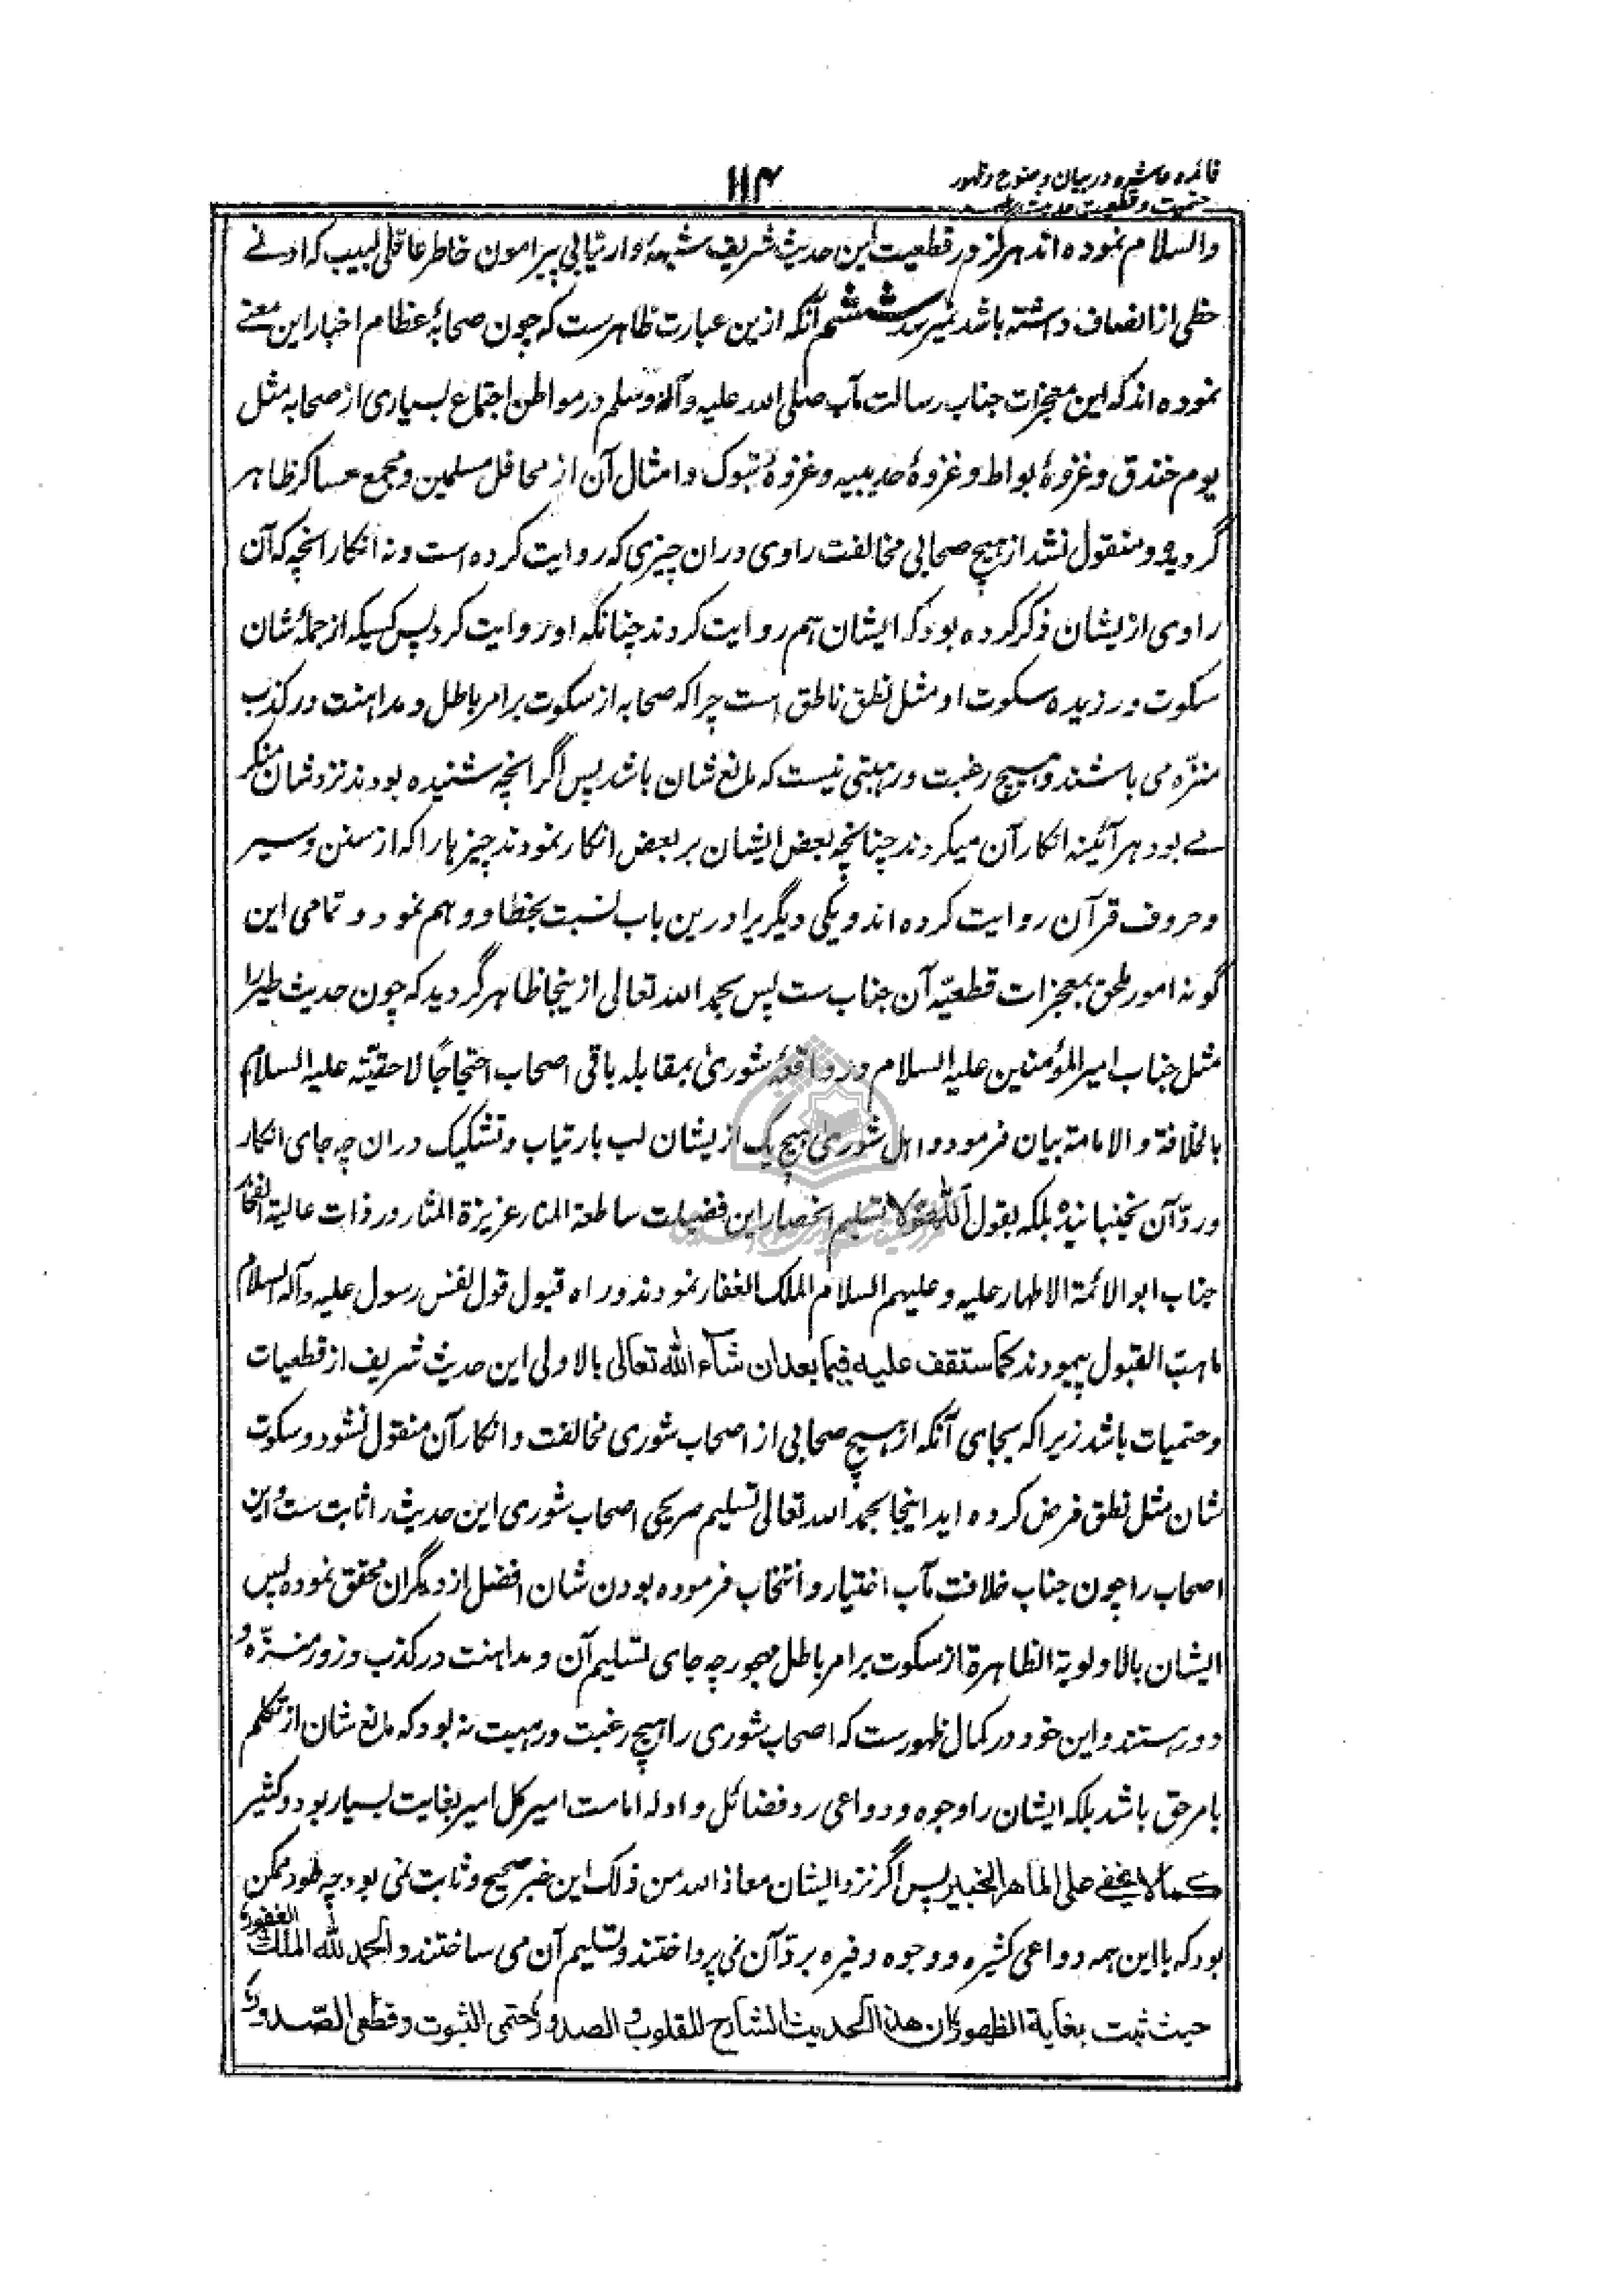 فائده عاشره در بیان وضوح و ظهور
۱۱۴
حتمیت و قطعیت حدیث
والسلام نموده‌اند هرگز در قطعیت این حدیث شریف شبهۀ و ارتیابی پیرامون خاطر عاقلی لبیب که ادنے
حظی از انصاف داشته باشد نمیرسد ششم آنکه ازین عبارت ظاهرست که چون صحابۀ عظام اخبار این معنے
نموده‌اند که این معجزات جناب رسالت مآب صلی الله علیه وآله وسلم در مواطن اجتماع بسیاری از صحابه مثل
یوم خندق و غزوۀ بواط و غزوۀ حدیبیه و غزوۀ تبوک و امثال آن از محافل مسلمین و مجمع عساکر ظاهر
گردیده و منقول نشد از هیچ صحابی مخالفت راوی دران چیزی که روایت کرده است و نه انکار انچه که آن
راوی ازیشان ذکر کرده بود که ایشان هم روایت کردند چنانکه او روایت کرد پس کسیکه از جملۀ شان
سکوت ورزیده سکوت او مثل نطق ناطق است چرا که صحابه از سکوت بر امر باطل و مداهنت در کذب
منزّه می باشند و هیچ رغبت و رهبتی نیست که مانع شان باشد پس اگر انچه شنیده بودند نزد شان منکر
مے بود هر آئینه انکار آن میکردند چنانچه بعض ایشان بر بعض انکار نمودند چیزها را که از سنن و سیر
و حروف قرآن روایت کرده‌اند و یکی دیگر یرا درین باب نسبت بخطا و وهم نمود و تمامی این
گونه امور ملحق بمعجزات قطعیّه آن جناب ست پس بحمد الله تعالی ازینجا ظاهر گردید که چون حدیث طیر را
مثل جناب امیر المؤمنین علیه السلام در واقعۀ شوریٰ بمقابله باقی اصحاب احتجاجًا لاحقیّته علیه السلام
بالخلافة والامامة بیان فرمود و اهل شوری هیچ یک ازیشان لب بارتیاب و تشکیک دران چه جای انکار
و ردّ آن نجنبانیده بلکه بقول اللّهمّ لا تسلیم انحصار این فضیلت ساطعة المنار عزیزة المثار در ذات عالیة الفخار
جناب ابو الائمة الاطهار علیه و علیهم السلام الملک الغفار نمودند و راه قبول قول نفس رسول علیه وآله السلام
ما هبت القبول پیمودند کما ستقف علیه فیما بعد ان شاء الله تعالی بالاولی این حدیث شریف از قطعیات
و حتمیات باشد زیرا که بجای آنکه از هیچ صحابی از اصحاب شوری مخالفت و انکار آن منقول نشود و سکوت
شان مثل نطق فرض کرده اید اینجا بحمد الله تعالی تسلیم صریحی اصحاب شوری این حدیث را ثابت ست و این
اصحاب را چون جناب خلافت مآب اختیار و انتخاب فرموده بودن شان افضل از دیگران محقق نموده پس
ایشان بالاولویة الظاهرة از سکوت بر امر باطل مهجور چه جای تسلیم آن و مداهنت در کذب و زور منزّه و
دور هستند و این خود در کمال ظهورست که اصحاب شوری را هیچ رغبت و رهبت نه بود که مانع شان از تکلم
بامر حق باشد بلکه ایشان را وجوه و دواعی رد فضائل و ادلۀ امامت امیر کل امیر بغایت بسیار بود و کثیر
کما لا یخفے علی الماهر الخبیر پس اگر نزد ایشان معاذ الله من ذلک این خبر صحیح و ثابت نمی بود چه طور ممکن
بود که با این همه دواعی کثیره و وجوه وفیره بردّ آن نمی پرداختند و تسلیم آن می ساختند والحمد لله الملک الغفور
حیث ثبت بغایة الظهور ان هذا الحدیث الشارح للقلوب و الصدور حتمی الثبوت و قطعی الصّدور